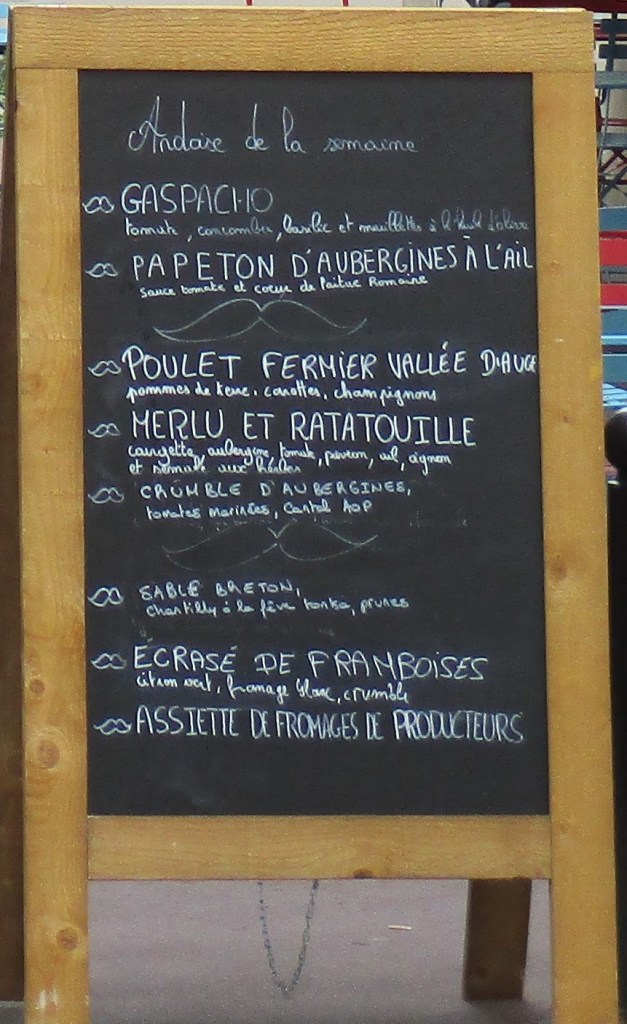 Ardoise de la semaine
GASPACHO
tomate, concombre, basilic et mouillettes à l'huile d'olive
PAPETON D'AUBERGINES À L'AIL
sauce tomate et coeur de laitue Romaine
POULET FERMIER VALLÉE D'AUGE
pommes de terre, carottes, champignons
MERLU ET RATATOUILLE
courgette, aubergine, tomate, poivron, ail, oignon
et semoule aux herbes
CRUMBLE D'AUBERGINES,
tomates marinées, Cantal AOP
SABLÉ BRETON,
chantilly à la fève tonka, prunes
ÉCRASÉ DE FRAMBOISES
citron vert, fromage blanc, crumble
ASSIETTE DE FROMAGES DE PRODUCTEURS